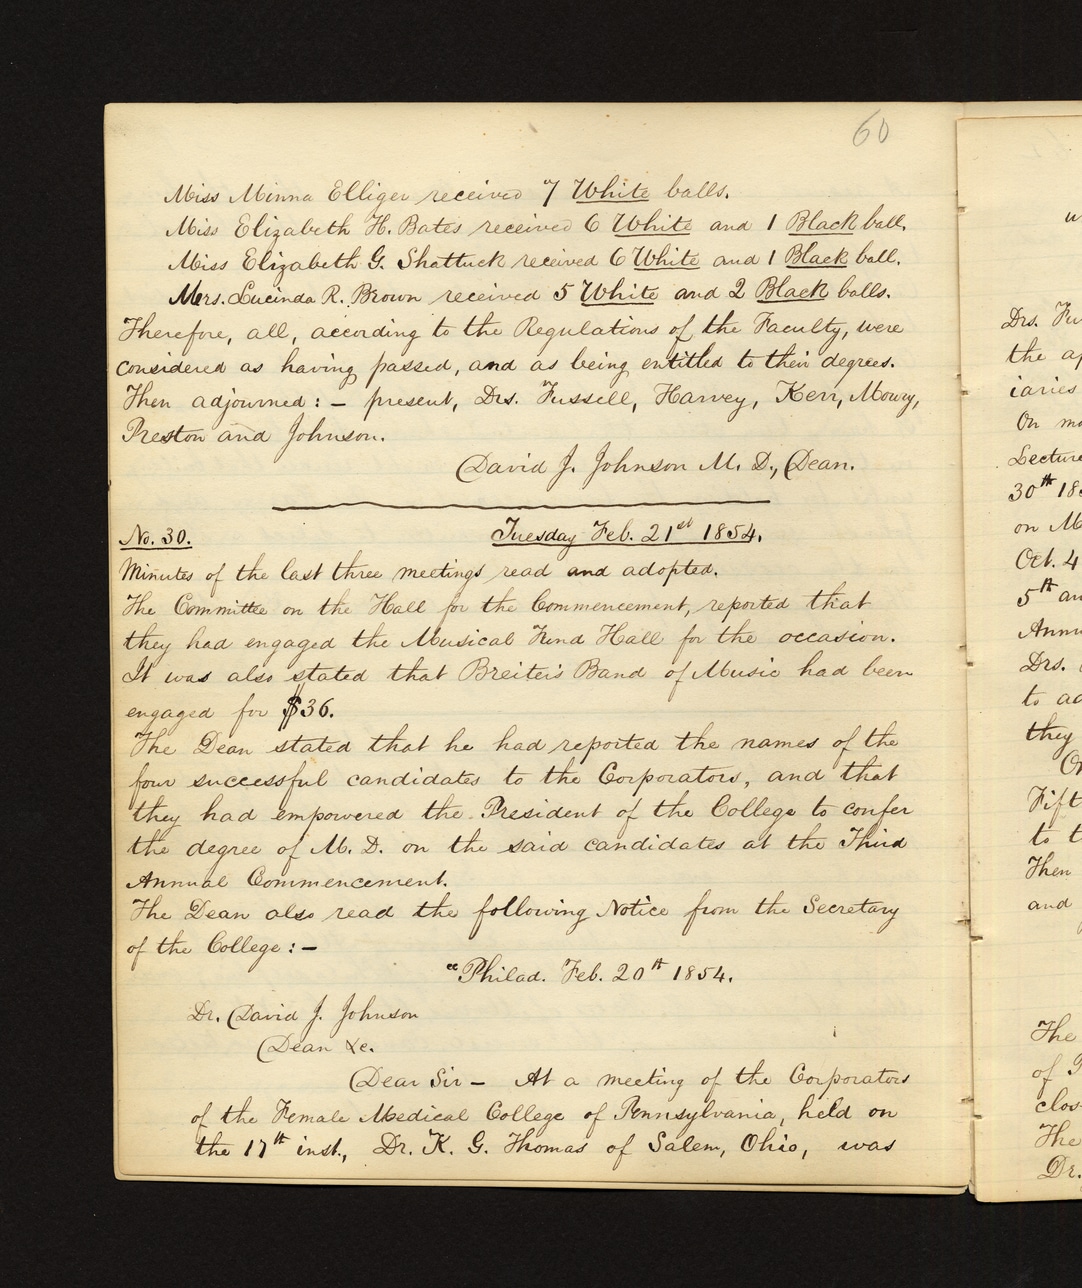 60
Miss Minna Elliger received 7 White balls.
Miss Elizabeth H. Bates received 6 White and 1 Black ball.
Miss Elizabeth G. Shattuck received 6 White and 1 Black ball.
Mrs. Lucinda R. Brown received 5 White and 2 Black balls.
Therefore, all, according to the Regulations of the Faculty, were
considered as having passed, and as being entitled to their degrees.
Then adjourned: – present, Drs. Fussell, Harvey, Kerr, Mowry,
Preston and Johnson.
David J. Johnson M. D., Dean.
No. 30. Tuesday Feb. 21st 1854.
Minutes of the last three meetings read and adopted.
The Committee on the Hall for the Commencement, reported that
they had engaged the Musical Fund Hall for the occasion.
It was also stated that Breiter's Band of Music had been
engaged for $36.
The Dean stated that he had reported the names of the
four successful candidates to the Corporators, and that
they had empowered the President of the College to confer
the degree of M. D. on the said candidates at the Third
Annual Commencement.
The Dean also read the following Notice from the Secretary
of the College: –
"Philad. Feb. 20th 1854.
Dr. David J. Johnson
Dean &c.
Dear Sir – At a meeting of the Corporators
of the Female Medical College of Pennsylvania, held on
the 17th inst., Dr. K. G. Thomas of Salem, Ohio, was
Drs.
the
iaries
On
Lecture
30th
on
Oct. 4
5th
Drs.
to
they
Fift
to
Then
and
The
of
The
Dr.